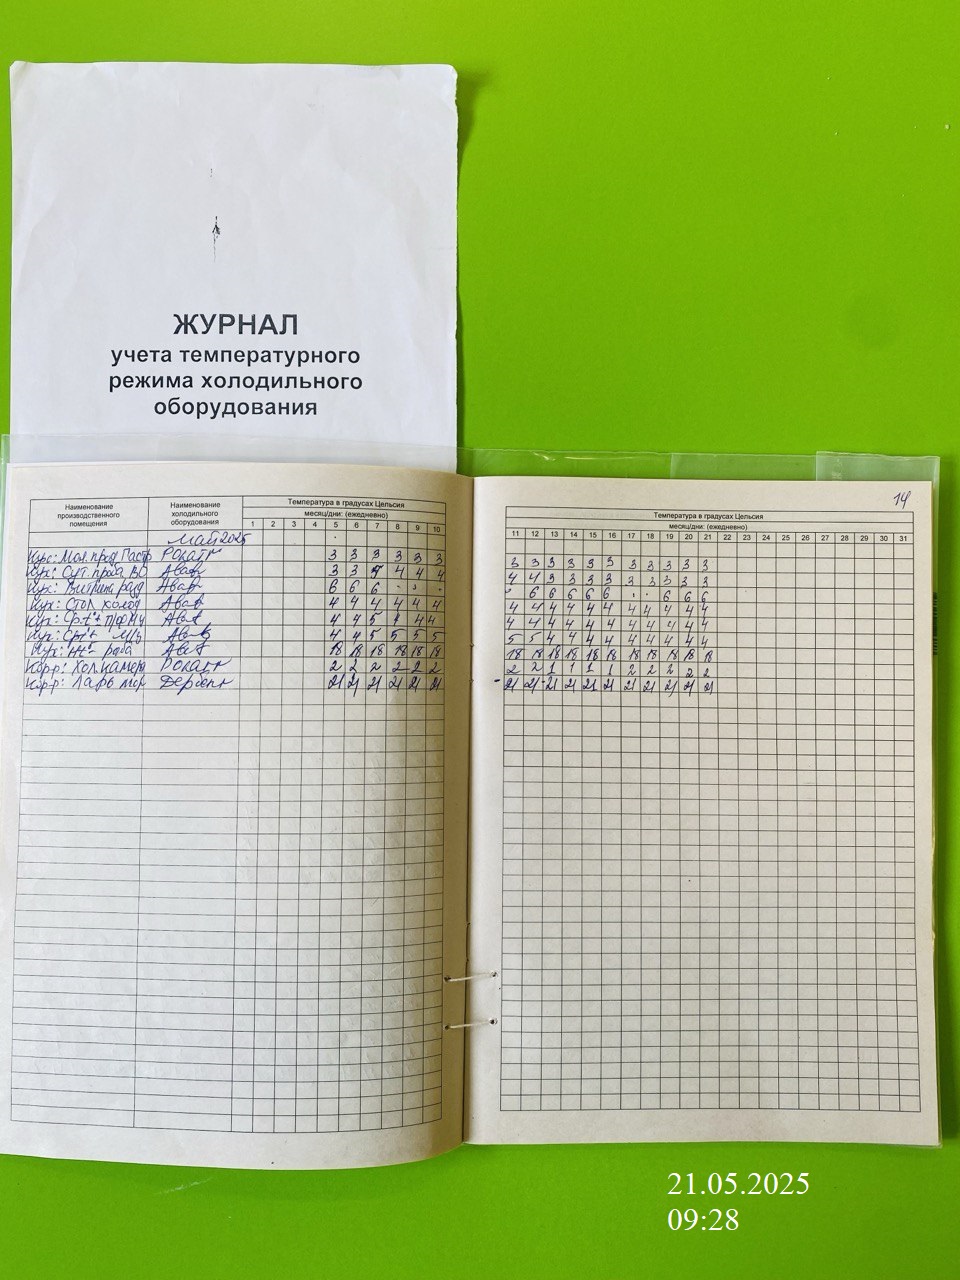 ЖУРНАЛ
учета температурного
режима холодильного
оборудования
14
Наименование производственного помещения
Наименование холодильного оборудования
Температура в градусах Цельсия
месяц/дни: (ежедневно)
1 2 3 4 5 6 7 8 9 10
Температура в градусах Цельсия
месяц/дни: (ежедневно)
11 12 13 14 15 16 17 18 19 20 21 22 23 24 25 26 27 28 29 30 31
май 2025
3 3 3 3 3 3 3 3 3 3 3 3 3 3 3 3 3
3 3 4 4 4 4 4 3 3 3 3 3 3 3 3 3
6 6 6 6 6 6 6 6 6 6 6
Стол холод 4 4 4 4 4 4 4 4 4 4 4 4 4 4 4 4 4
4 4 5 4 4 4 4 4 4 4 4 4 4 4 4 4
4 4 5 5 5 5 5 5 4 4 4 4 4 4 4 4 4
18 18 18 18 18 18 18 18 18 18 18 18 18 18 18 18 18
Хол камера 2 2 2 2 2 2 2 2 1 1 1 1 2 2 2 2 2
Ларь мор Дербент 21 21 21 21 21 21 21 21 21 21 21 21 21 21 21 21 21
21.05.2025
09:28